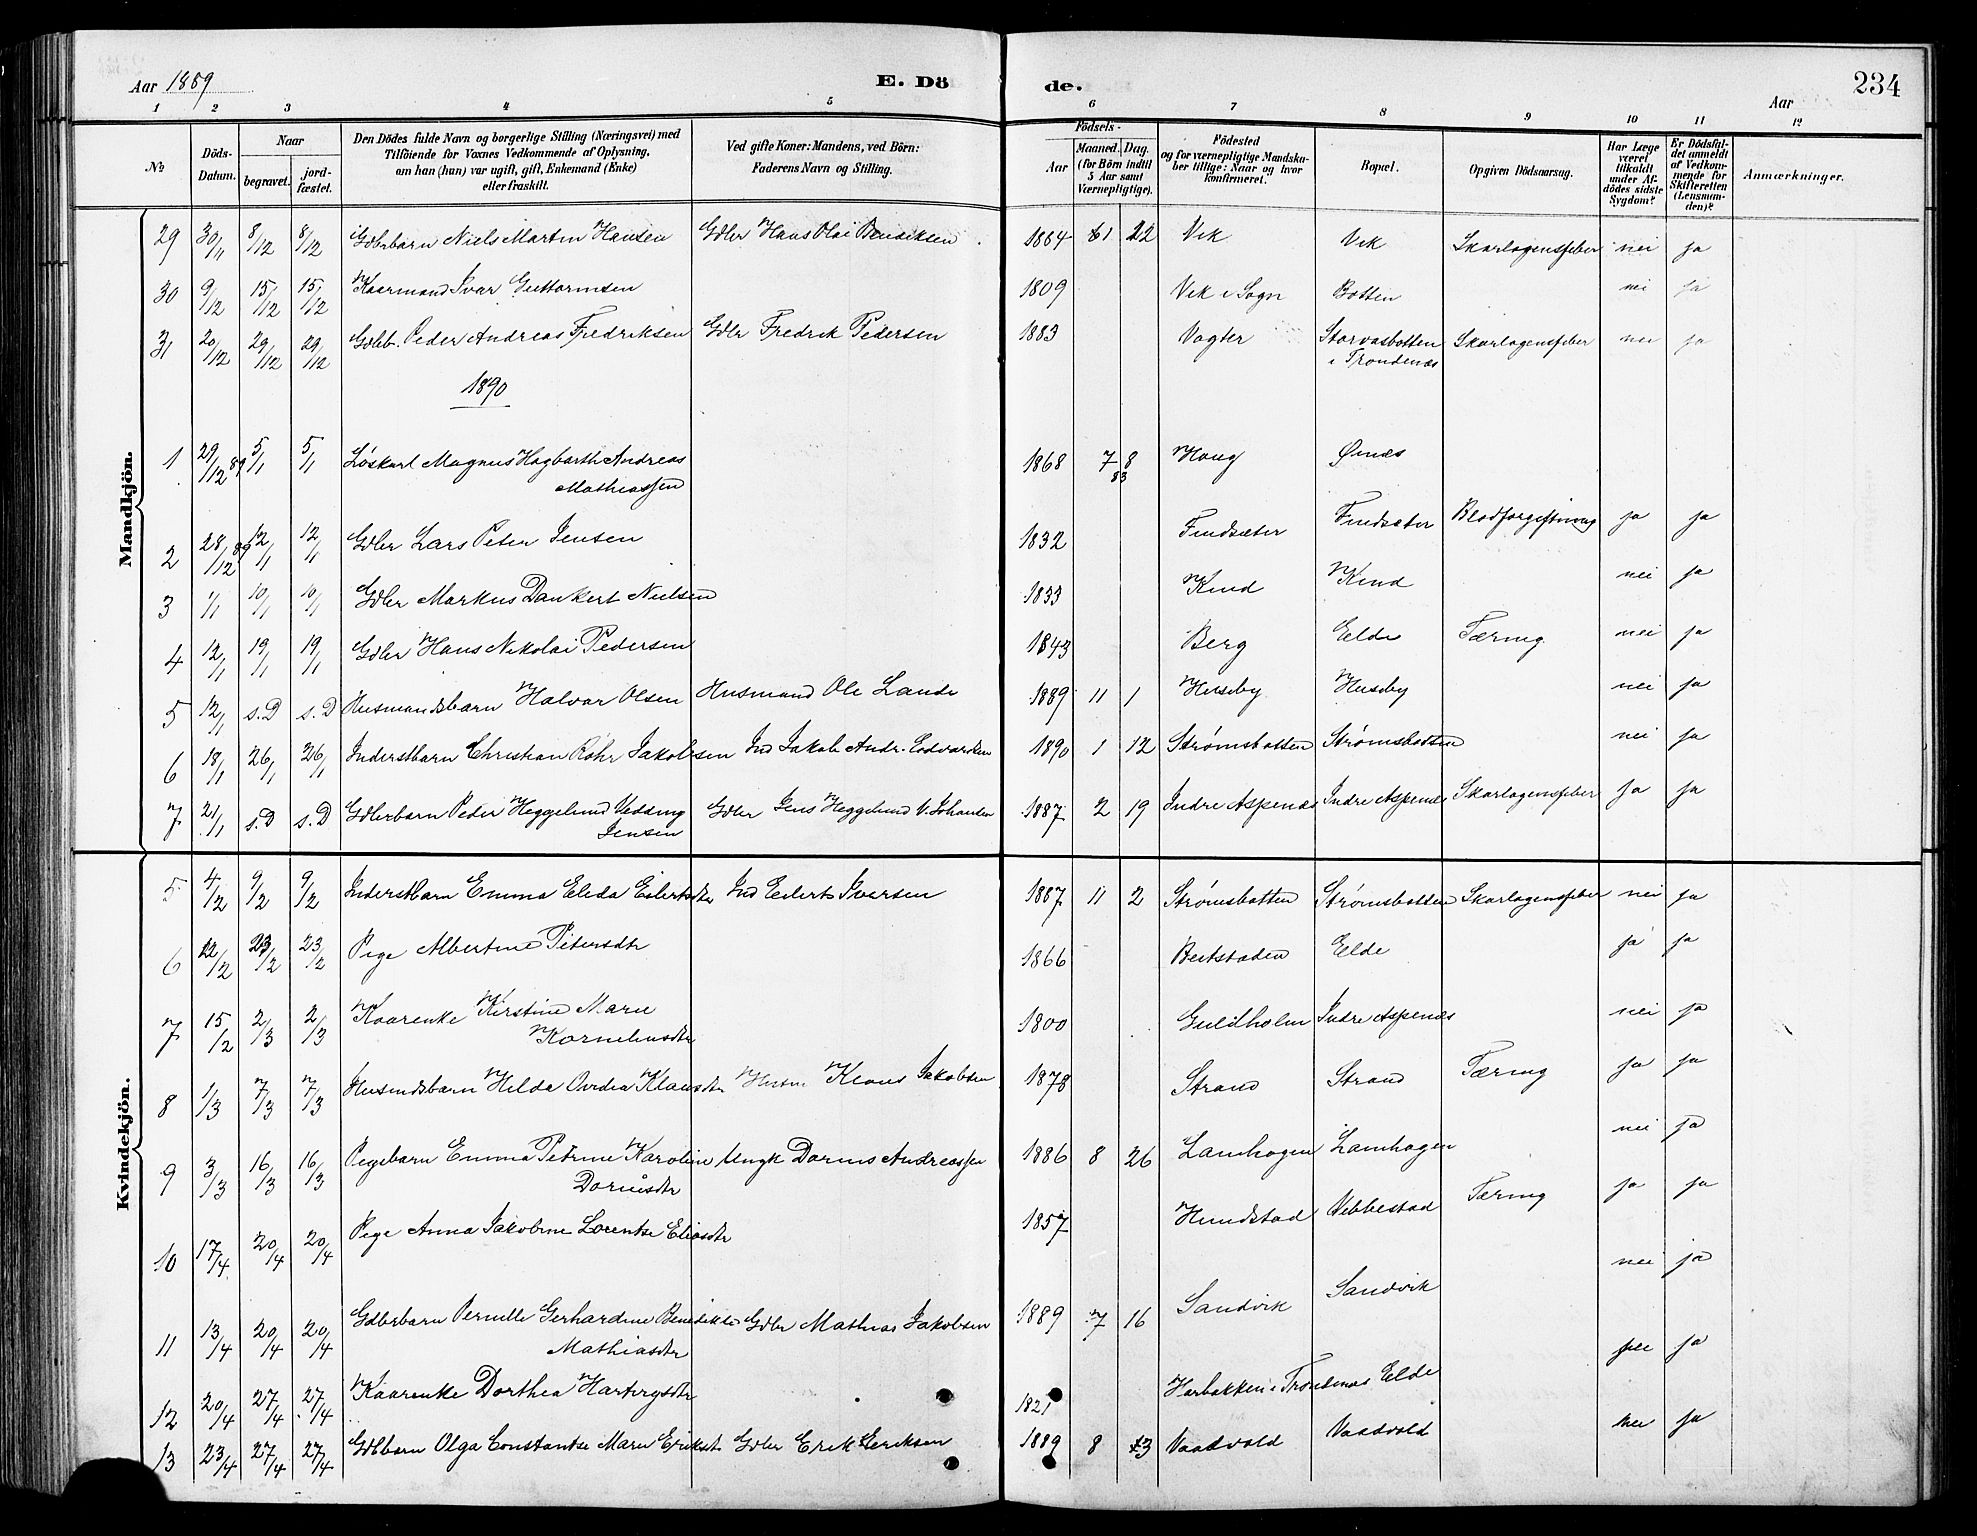 Aar 1889 E. Dö de. Aar 234
1 2 3 4 5 6 7 8 9 10 11 12
No Döds-Datum. Naar begravet. jordfæstet. Den Dödes fulde Navn og borgerlige Stilling (Næringsvei) med Tilföiende for Voxnes Vedkommende af Oplysning, om han (hun) var ugift, gift, Enkemand (Enke) eller fraskilt. Ved gifte Koner: Mandens, ved Börn: Faderens Navn og Stilling. Födsels- Aar Maaned. Dag. (for Börn indtil 5 Aar samt Værnepligtige). Födested og for værnepligtige Mandskaber tillige: Naar og hvor konfirmeret. Bopæl. Opgiven Dödsaarsag. Har Læge været tilkaldt under Afdödes sidste Sygdom? Er Dödsfaldet anmeldt af Vedkommende for Skifteretten (Lensmanden)? Anmærkninger.
Mandkjön.
29 30/11 8/12 8/12 Gdbrbarn Niels Martin Hansen Gdbr Hans Olai Bendiksen 1884 1 22 Vik Vik Skarlagensfeber nei ja
30 9/12 15/12 15/12 Kaarmand Ivar Guttormsen 1809 Vik i Sogn Botten nei ja
31 20/12 29/12 29/12 Gdbb. Peder Andreas Fredriksen Gdbr Fredrik Pedersen 1883 Vagter Storvasbotten i Trondenæs Skarlagensfeber nei ja
1890
1 29/12 89 5/1 5/1 Løskarl Magnus Hagbarth Andreas Mathiassen 1868 7 8 83 Haug Øinæs
2 28/12 89 12/1 12/1 Gdbr Lars Peter Jensen 1832 Findsæter Findsæter Blodforgiftning ja ja
3 1/1 10/1 10/1 Gdbr Markus Dankert Nielsen 1833 Kind Kind nei ja
4 12/1 19/1 19/1 Gdbr Hans Nikolai Pedersen 1843 Berg Elde Tæring nei ja
5 12/1 s.D s.D Husmandsbarn Halvar Olsen Husmand Ole Lande 1889 11 1 Huseby Huseby nei ja
6 18/1 26/1 26/1 Inderstbarn Christian Rohr Jakobsen Ind Jakob Andr. Edvardsen 1890 1 12 Strømsbotten Strømsbotten nei ja
7 21/1 s.D s.D Gdbrbarn Peder Heggelund Vedding Jensen Gdbr Jens Heggelund V. Johansen 1887 2 19 Indre Aspenæs Indre Aspenæs Skarlagensfeber ja ja
Kvindekjön.
5 4/2 9/2 9/2 Inderstbarn Emma Elida Eilertsdtr Ind Eilert Iversen 1887 11 2 Strømsbotten Strømsbotten Skarlagensfeber nei ja
6 12/2 23/2 23/2 Pige Albertine Petersdtr 1866 Beitstaden Elde ja ja
7 15/2 2/3 2/3 Kaarenke Kirstine Marie Korneliusdtr 1800 Guldholm Indre Aspenæs nei ja
8 1/3 7/3 7/3 Husmdsbarn Hilda Ovidia Klausdtr Husm Klaus Jakobsen 1878 Strand Strand Tæring ja ja
9 3/3 16/3 16/3 Pigebarn Emma Petrine Karoline Doriusdtr Ungk Dorius Andreassen 1886 8 26 Lamhagen Lamhagen nei ja
10 17/4 20/4 20/4 Pige Anna Jakobine Lorentze Eliasdtr 1857 Hundstad Vibbestad Tæring ja ja
11 13/4 20/4 20/4 Gdbrbarn Pernille Gerhardine Benedikte Mathiasdtr Gdbr Mathias Jakobsen 1889 7 16 Sandvik Sandvik nei ja
12 20/4 27/4 27/4 Kaarenke Dorthea Hartvigsdtr 1821 Harbakken i Trondenæs Elde nei ja
13 23/4 27/4 27/4 Gdbbarn Olga Constantse Marie Eriksdt Gdbr Erik Eriksen 1889 8 3 Vaadvold Vaadvold nei ja